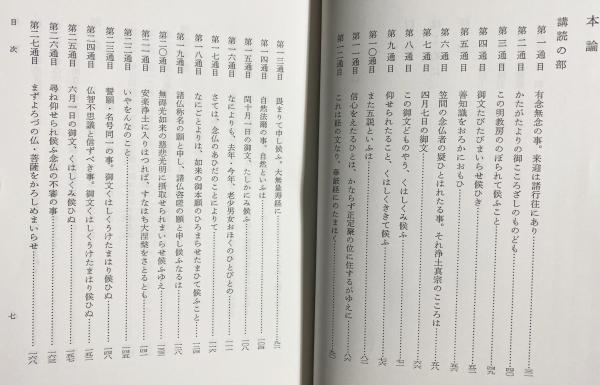 本論
講読の部
第一通目 有念無念の事。来迎は諸行往にあり
第二通目 かたがたよりの御こころざしのものども
第三通目 この明教房ののぼられて候ふこと
第四通目 御文たびたびまいらせ候ひき
第五通目 善知識をおろかにおもひ
第六通目 笠間の念仏者の疑ひとはれたる事。それ浄土真宗のこころは
第七通目 四月七日の御文
第八通目 この御文どものやう、くはしくみ候ふ
第九通目 仰せられたること、くはしくききて候ふ
第一〇通目 また五説といふは
第一一通目 信心をえたるひとは、かならず正定聚の位に住するがゆえに
第一二通目 これは経の文なり。華厳経にのたまはく
第一三通目 畏まりて申し候ふ。大無量寿経に
第一四通目 自然法爾の事。自然といふは
第一五通目 閏十月一日の御文、たしかにみ候ふ
第一六通目 なによりも、去年・今年、老少男女おほくのひとびとの
第一七通目 さては、念仏のあひだのことによりて
第一八通目 なにごとよりは、如来の御本願のひろまらせたまひて候ふこと
第一九通目 諸仏称名の願と申し、諸仏咨嗟の願と申し候ふなるは
第二〇通目 無碍光如来の慈悲光明に摂取せられまいらせ候ふゆえ
第二一通目 安楽浄土に入りはつれば、すなはち大涅槃をさとるとも
第二二通目 いやをんなのこと
第二三通目 誓願・名号同一の事。御文くはしくうけたまはり候ひぬ
第二四通目 仏智不思議と信ずべき事。御文くはしくうけたまはり候ひぬ
第二五通目 六月一日の御文、くはしくみ候ひぬ
第二六通目 尋ね仰せられ候ふ念仏の不審の事
第二七通目 まずよろづの仏・菩薩をかろしめまいらせ
目次
七